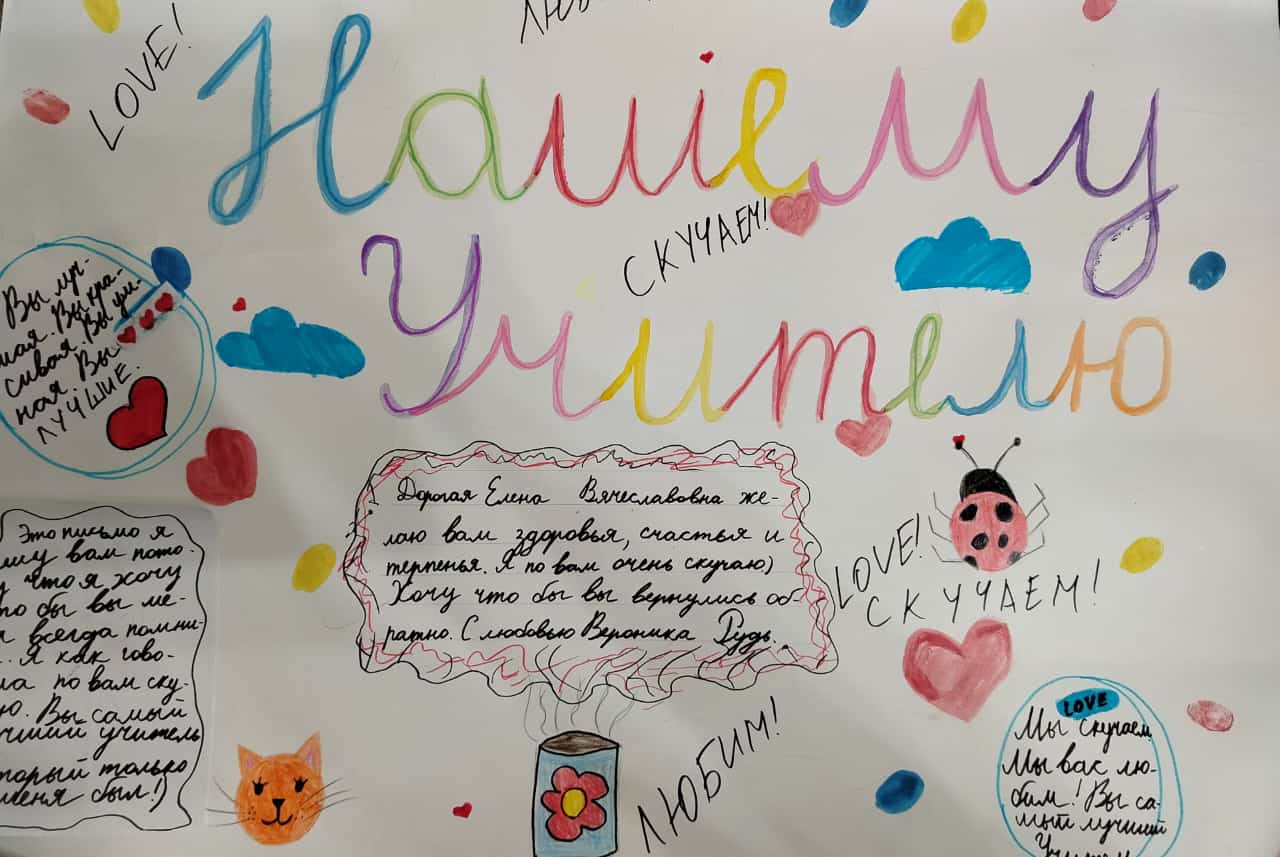 LOVE!
Нашему
СКУЧАЕМ!
Учителю
Вы луч-
шая. Вы кра-
сивая. Вы ум-
ная. Вы
ЛУЧШИЕ.
Дорогая Елена Вячеславовна же-
лаю вам здоровья, счастья и
терпенья. Я по вам очень скучаю)
Хочу что бы вы вернулись об-
ратно. С любовью Вероника Рудь.
LOVE!
СКУЧАЕМ!
Это письмо я
шу вам пото-
у что я хочу
то бы вы ме-
я всегда помни-
. Я как гово-
ла по вам ску-
ю. Вы самый
учший учитель
торый только
меня был!)
ЛЮБИМ!
LOVE
Мы скучаем
Мы вас лю-
бим! Вы са-
мый лучший